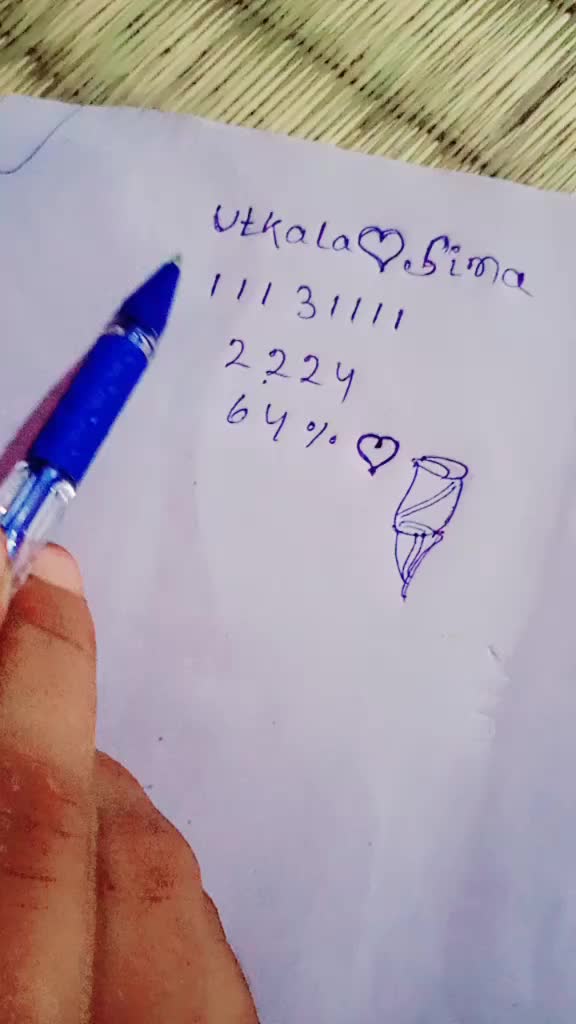 Utkala♡Sima
11131111
2224
64% ♡